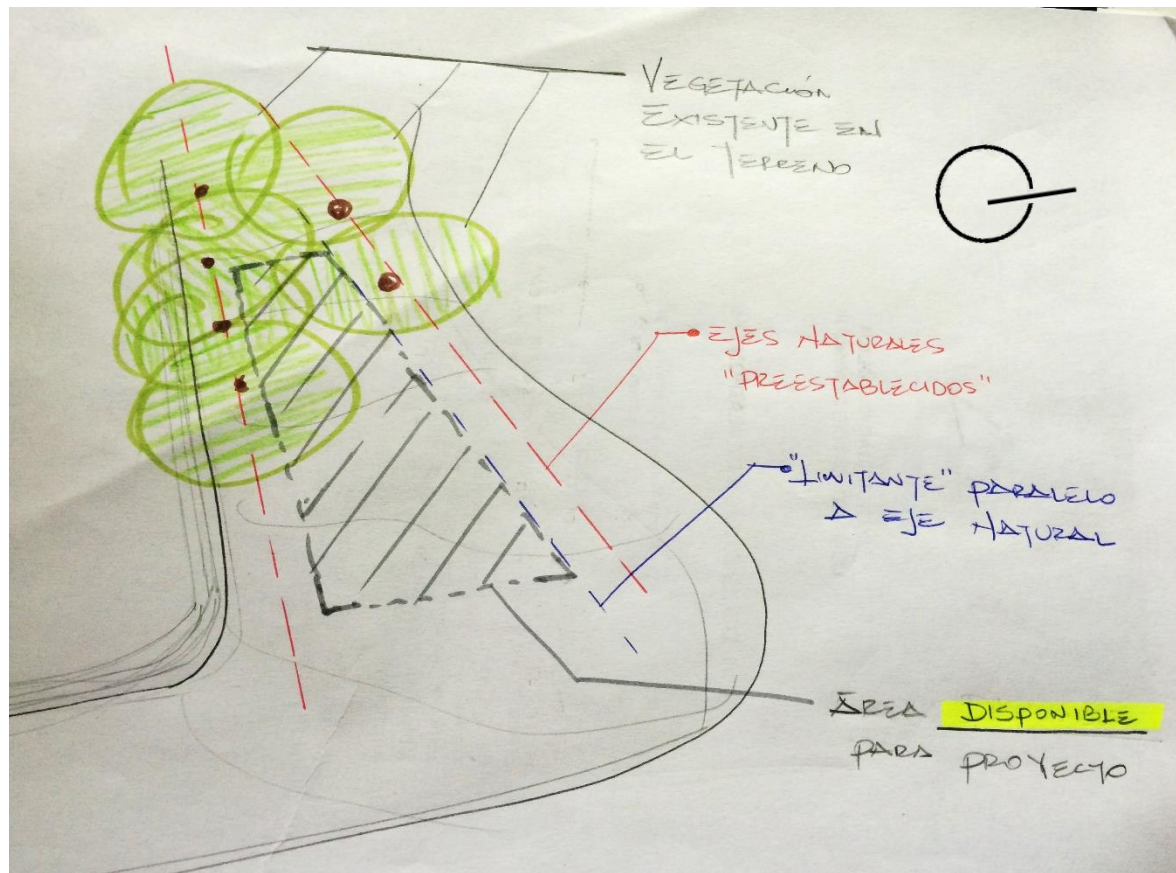 VEGETACIÓN
EXISTENTE EN
EL TERRENO
EJES NATURALES
"PREESTABLECIDOS"
"LIMITANTE" PARALELO
A EJE NATURAL
ÁREA DISPONIBLE
PARA PROYECTO